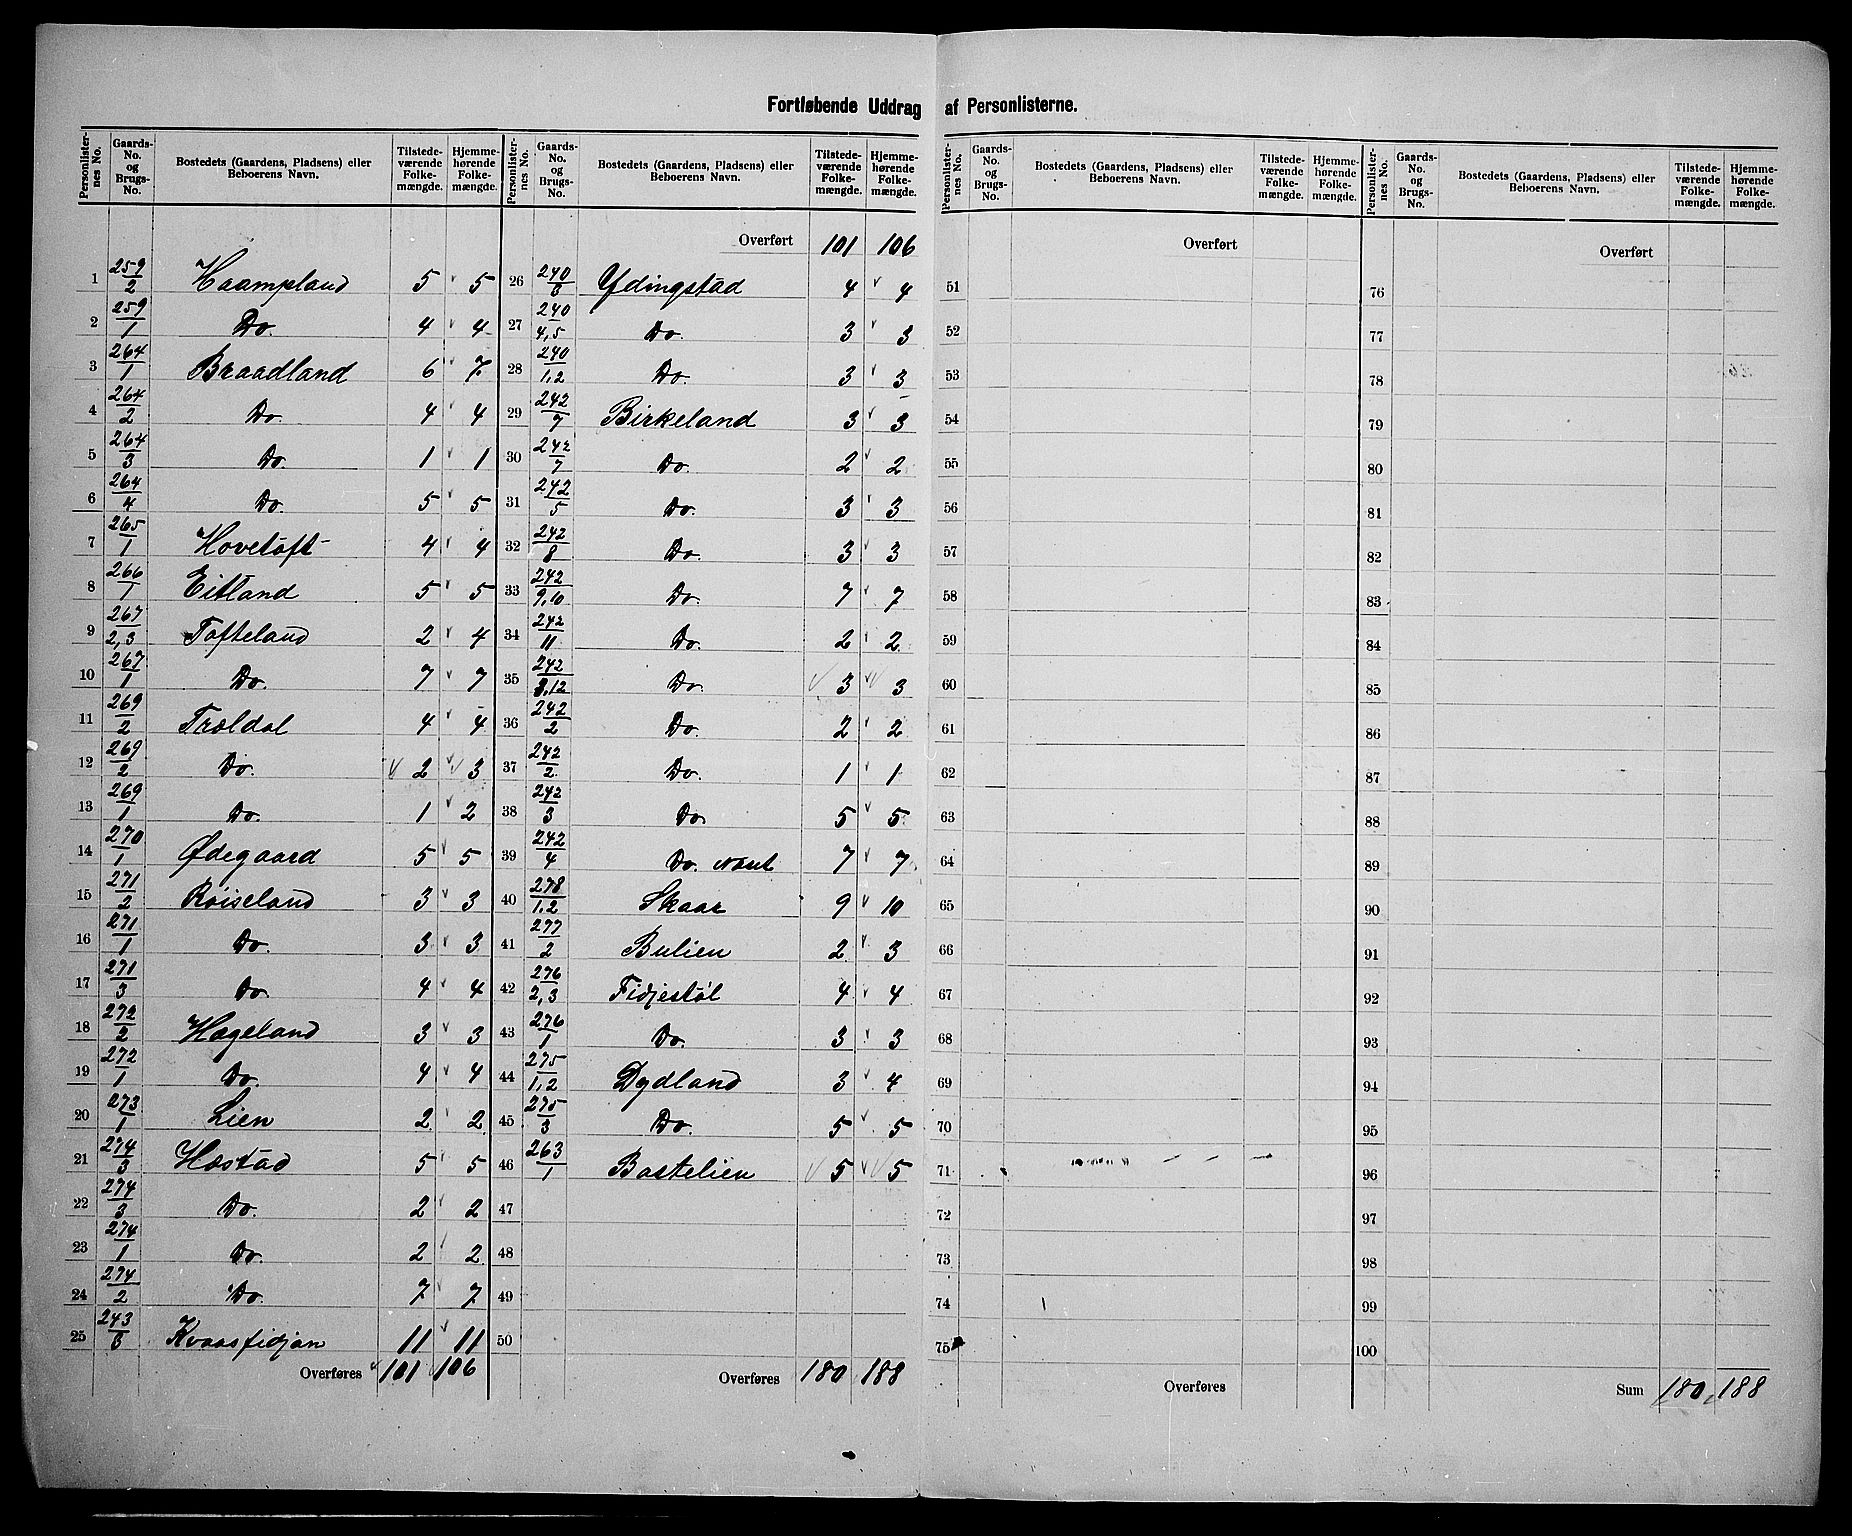 Fortløbende Uddrag af Personlisterne.
Personlister-nes No. Gaards-No. og Brugs-No. Bostedets (Gaardens, Pladsens) eller Beboerens Navn. Tilstede-værende Folke-mængde. Hjemme-hørende Folke-mængde.
1 259/2 Haampland 5 5
2 259/1 Do. 4 4
3 264/1 Braadland 6 7
4 264/2 Do. 4 4
5 264/3 Do. 1 1
6 264/4 Do. 5 5
7 265/1 Hovetoft 4 4
8 266/1 Eitland 5 5
9 267/2,3 Tofteland 2 4
10 267/1 Do. 7 7
11 269/2 Trældal 4 4
12 269/2 Do. 2 3
13 269/1 Do. 1 2
14 270/1 Ødegaard 5 5
15 271/2 Røiseland 3 3
16 271/1 Do. 3 3
17 271/3 Do. 4 4
18 272/2 Hægeland 3 3
19 272/1 Do. 4 4
20 273/1 Lien 2 2
21 274/3 Hæstad 5 5
22 274/3 Do. 2 2
23 274/1 Do. 2 2
24 274/2 Do. 7 7
25 243/6 Kvaasfidjan 11 11
Overføres 101 106
Personlister-nes No. Gaards-No. og Brugs-No. Bostedets (Gaardens, Pladsens) eller Beboerens Navn. Tilstede-værende Folke-mængde. Hjemme-hørende Folke-mængde.
Overført 101 106
26 240/6 Ydingstad 4 4
27 240/4,5 Do. 3 3
28 240/1,2 Do. 3 3
29 242/7 Birkeland 3 3
30 242/7 Do. 2 2
31 242/5 Do. 3 3
32 242/8 Do. 3 3
33 242/9,10 Do. 7 7
34 242/11 Do. 2 2
35 242/8,12 Do. 3 3
36 242/2 Do. 2 2
37 242/2 Do. 1 1
38 242/3 Do. 5 5
39 242/4 Do. 7 7
40 278/1,2 Skaar 9 10
41 277/2 Bulien 2 3
42 276/2,3 Fidjestøl 4 4
43 276/1 Do. 3 3
44 275/1,2 Dydland 3 4
45 275/3 Do. 5 5
46 263/1 Bastelien 5 5
47
48
49
50
Overføres 180 188
Personlister-nes No. Gaards-No. og Brugs-No. Bostedets (Gaardens, Pladsens) eller Beboerens Navn. Tilstede-værende Folke-mængde. Hjemme-hørende Folke-mængde.
Overført
51
52
53
54
55
56
57
58
59
60
61
62
63
64
65
66
67
68
69
70
71
72
73
74
75
Overføres
Personlister-nes No. Gaards-No. og Brugs-No. Bostedets (Gaardens, Pladsens) eller Beboerens Navn. Tilstede-værende Folke-mængde. Hjemme-hørende Folke-mængde.
Overført
76
77
78
79
80
81
82
83
84
85
86
87
88
89
90
91
92
93
94
95
96
97
98
99
100
Sum 180 188